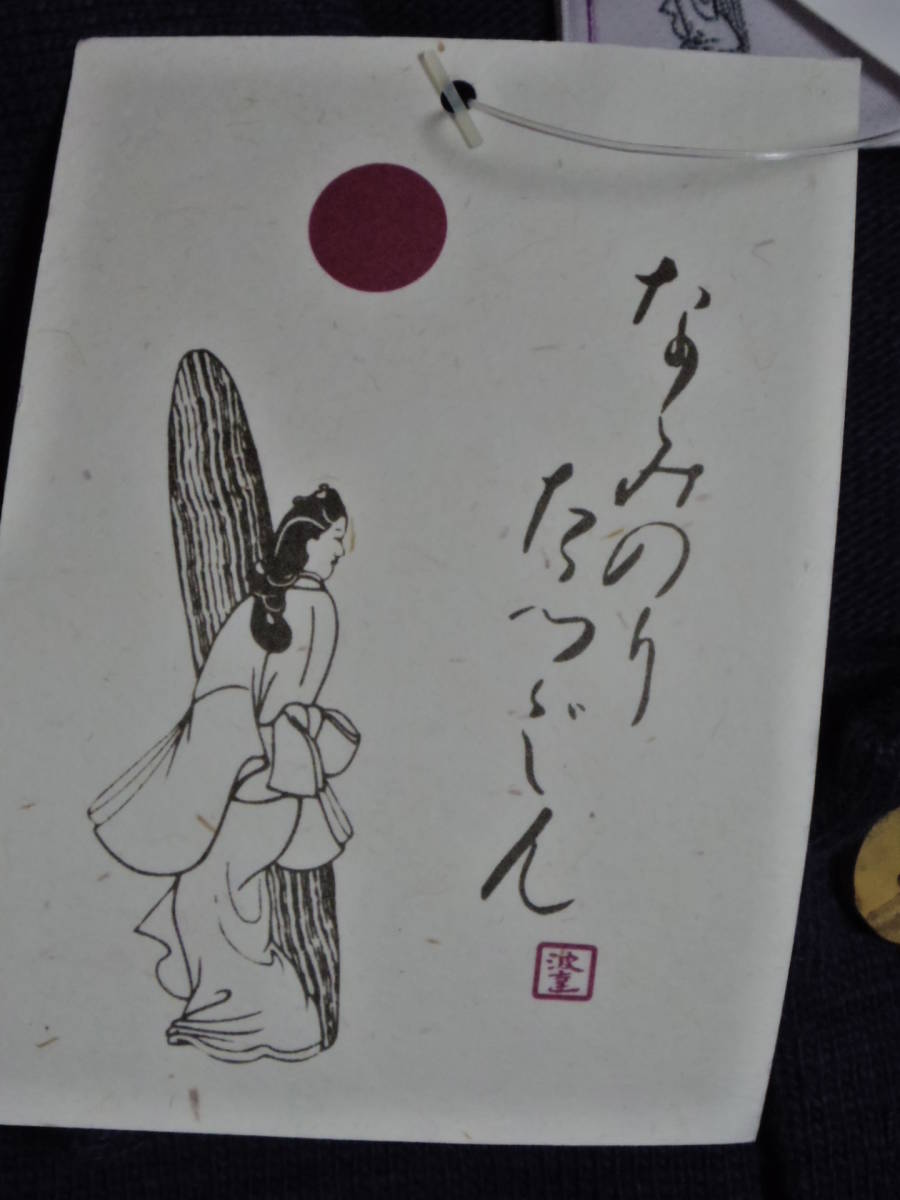 なみのり
たつじん
波達